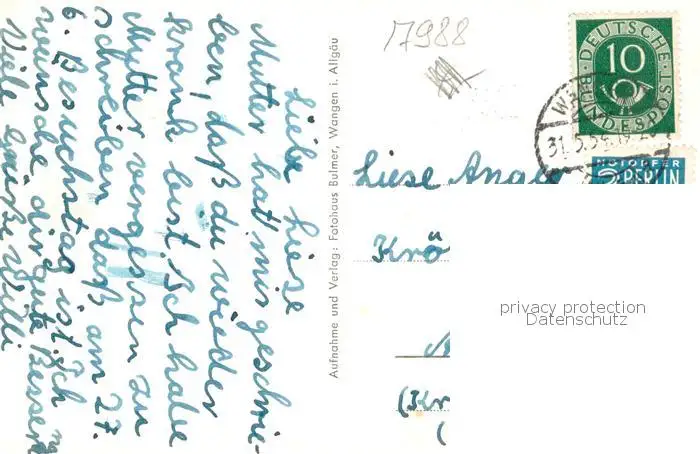 Liebe Liese
Mutter hat mir geschrie-
ben, daß du wieder
krank bist ich habe
Mutter vergessen zu
schreiben daß am 27.
6. Besuchstag ist. Ich
wünsche dir gute Besserung
Viele Grüße Willi
Aufnahme und Verlag: Fotohaus Bulmer, Wangen i. Allgäu
17988
DEUTSCHE
10
BUNDESPOST
31.5.54
NOTOPFER
2 BERLIN
Liese
Krö
(Kr
(
privacy protection
Datenschutz